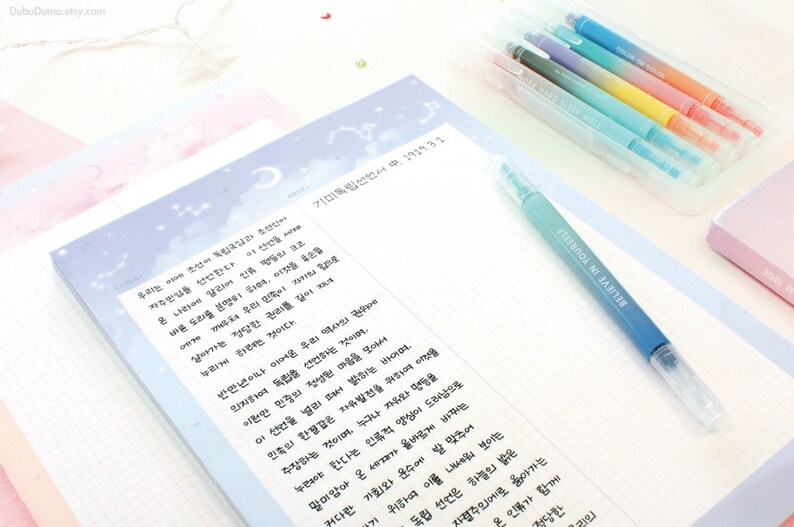 DubuDumo.etsy.com
COLOR OR COLOR
BELIEVE IN YOURSELF
DATE:
TITLE:
기미독립선언서 中. 1919. 3. 1
우리는 이에 조선이 독립국임과 조선인이
자주민임을 선언한다. 이 선언을 세계
온 나라에 알리어 인류 평등의 크고
바른 도리를 분명히 하며, 이것을 후손들
에게 깨우쳐 우리 민족이 자기의 힘으로
살아가는 정당한 권리를 길이 지녀
누리게 하려는 것이다.
반만년이나 이어온 우리 역사의 권위에
의지하여 독립을 선언하는 것이며,
이천만 민중의 정성된 마음을 모아서
이 선언을 널리 펴서 밝히는 바이며,
민족의 한결같은 자유발전을 위하여 이것을
주장하는 것이며, 누구나 자유와 평등을
누려야 한다는 인류적 양심이 드러남으로
말미암아 온 세계가 올바르게 바뀌는
커다란 기회와 운수에 발 맞추어
위하여 이를 내세워 보이는
독립 선언은 하늘의 밝은
자결주의에로 옮아가는
온 인류가 함께
정당한